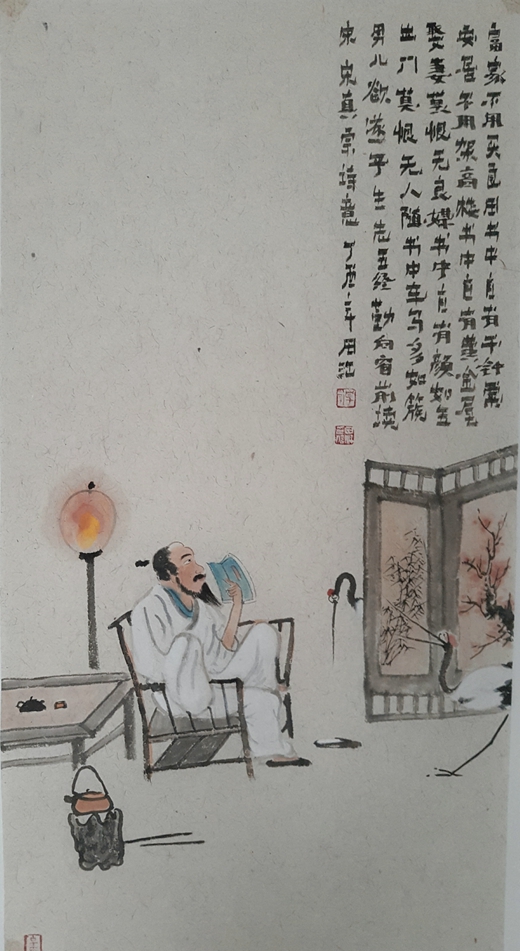 富家不用买良田书中自有千钟粟
安居不用架高楼书中自有黄金屋
娶妻莫恨无良媒书中自有颜如玉
出门莫恨无人随书中车马多如簇
男儿欲遂平生志五经勤向窗前读
宋真宗诗意丁酉年